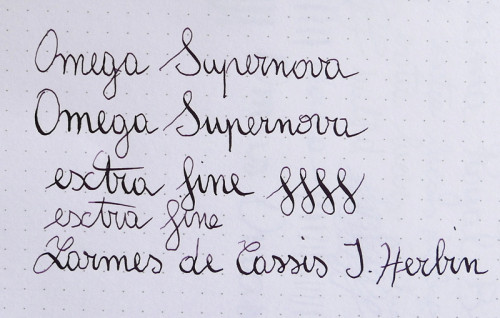 Omega Supernova
Omega Supernova
extra fine ffff
extra fine
Larmes de Cassis J. Herbin